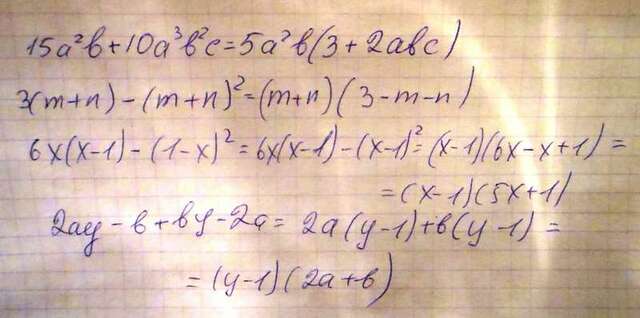 15a²b+10a³b²c=5a²b(3+2abc)
3(m+n)-(m+n)²=(m+n)(3-m-n)
6x(x-1)-(1-x)²=6x(x-1)-(x-1)²=(x-1)(6x-x+1)=
=(x-1)(5x+1)
2ay-b+by-2a=2a(y-1)+b(y-1)=
=(y-1)(2a+b)